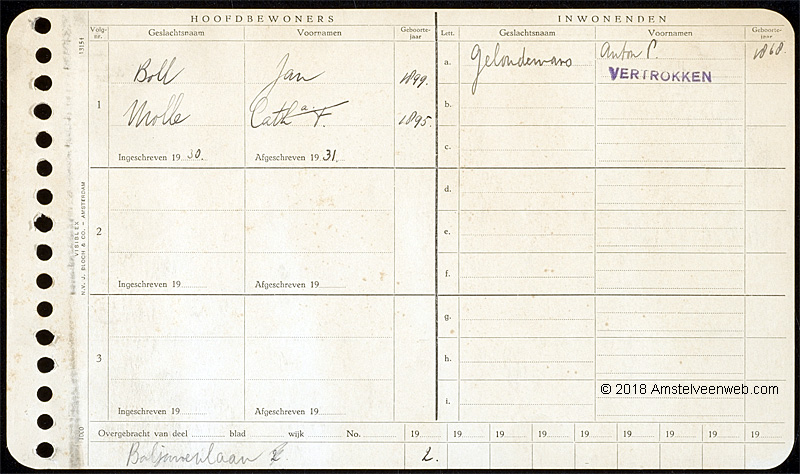 HOOFDBEWONERS
Volg-nr. Geslachtsnaam Voornamen Geboorte-jaar
1 Boll Jan 1899.
Molle Cath a. F. 1895.
Ingeschreven 19 30. Afgeschreven 19 31.
2
Ingeschreven 19 Afgeschreven 19
3
Ingeschreven 19 Afgeschreven 19
INWONENDEN
Lett. Geslachtsnaam Voornamen Geboorte-jaar
a. Anton P. 1868.
VERTROKKEN
b.
c.
d.
e.
f.
g.
h.
i.
© 2018 Amstelveenweb.com
Overgebracht van deel blad wijk No. 19 19 19 19 19 19 19 19 19
2.
13151
VISIBLEX
N.V. J. BLOCH & CO. - AMSTERDAM